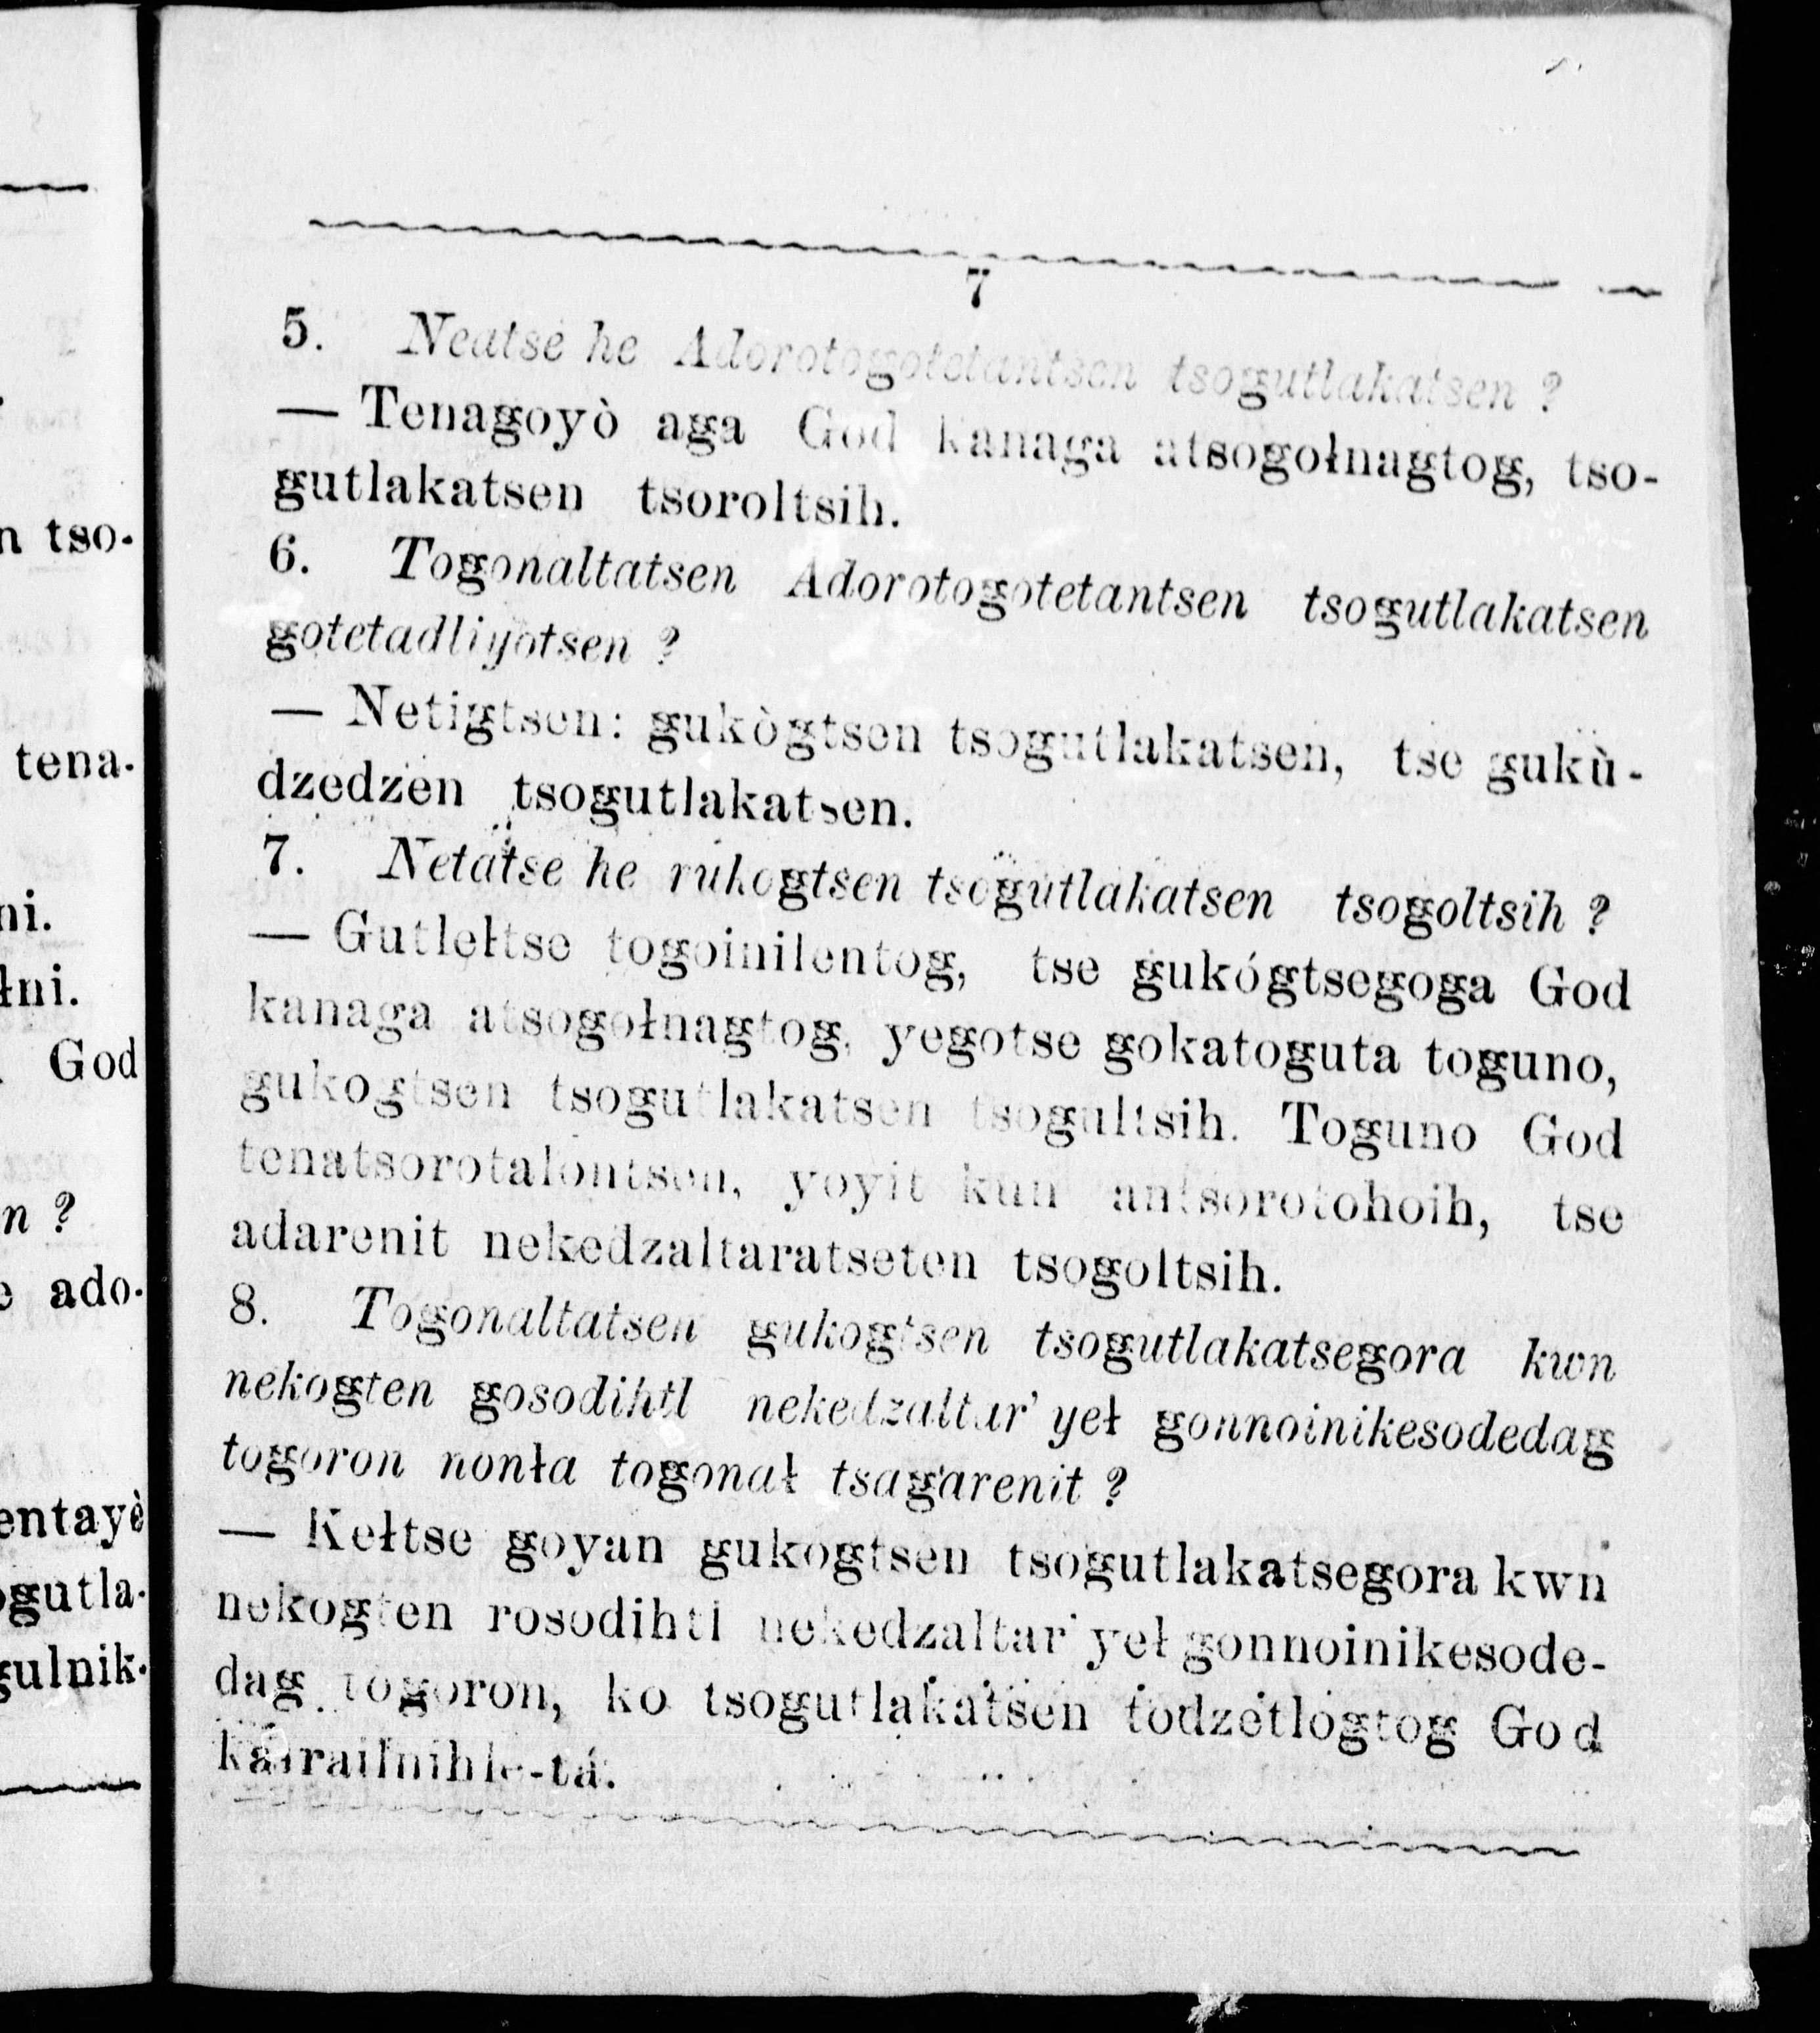 7
5. Neatse he Adorotogotetantsen tsogutlakatsen ?
— Tenagoyò aga God kanaga atsogołnagtog, tso-
gutlakatsen tsoroltsih.
6. Togonaltatsen Adorotogotetantsen tsogutlakatsen
gotetadliyotsen ?
— Netigtsen: gukògtsen tsogutlakatsen, tse gukù-
dzedzen tsogutlakatsen.
7. Netatse he rukogtsen tsogutlakatsen tsogoltsih ?
— Gutlełtse togoinilentog, tse gukógtsegoga God
kanaga atsogołnagtog, yegotse gokatoguta toguno,
gukogtsen tsogutlakatsen tsogultsih. Toguno God
tenatsorotalontsen, yoyit kun antsorotohoih, tse
adarenit nekedzaltaratseten tsogoltsih.
8. Togonaltatsen gukogtsen tsogutlakatsegora kwn
nekogten gosodihtl nekedzaltar' yeł gonnoinikesodedag
togoron nonła togonał tsagarenit ?
— Kełtse goyan gukogtsen tsogutlakatsegora kwn
nekogten rosodihtl nekedzaltar' yeł gonnoinikesode-
dag togoron, ko tsogutlakatsen todzetlogtog God
n tso-
tena-
ni.
łni.
God
n ?
ado-
entayè
ogutla-
gulnik-